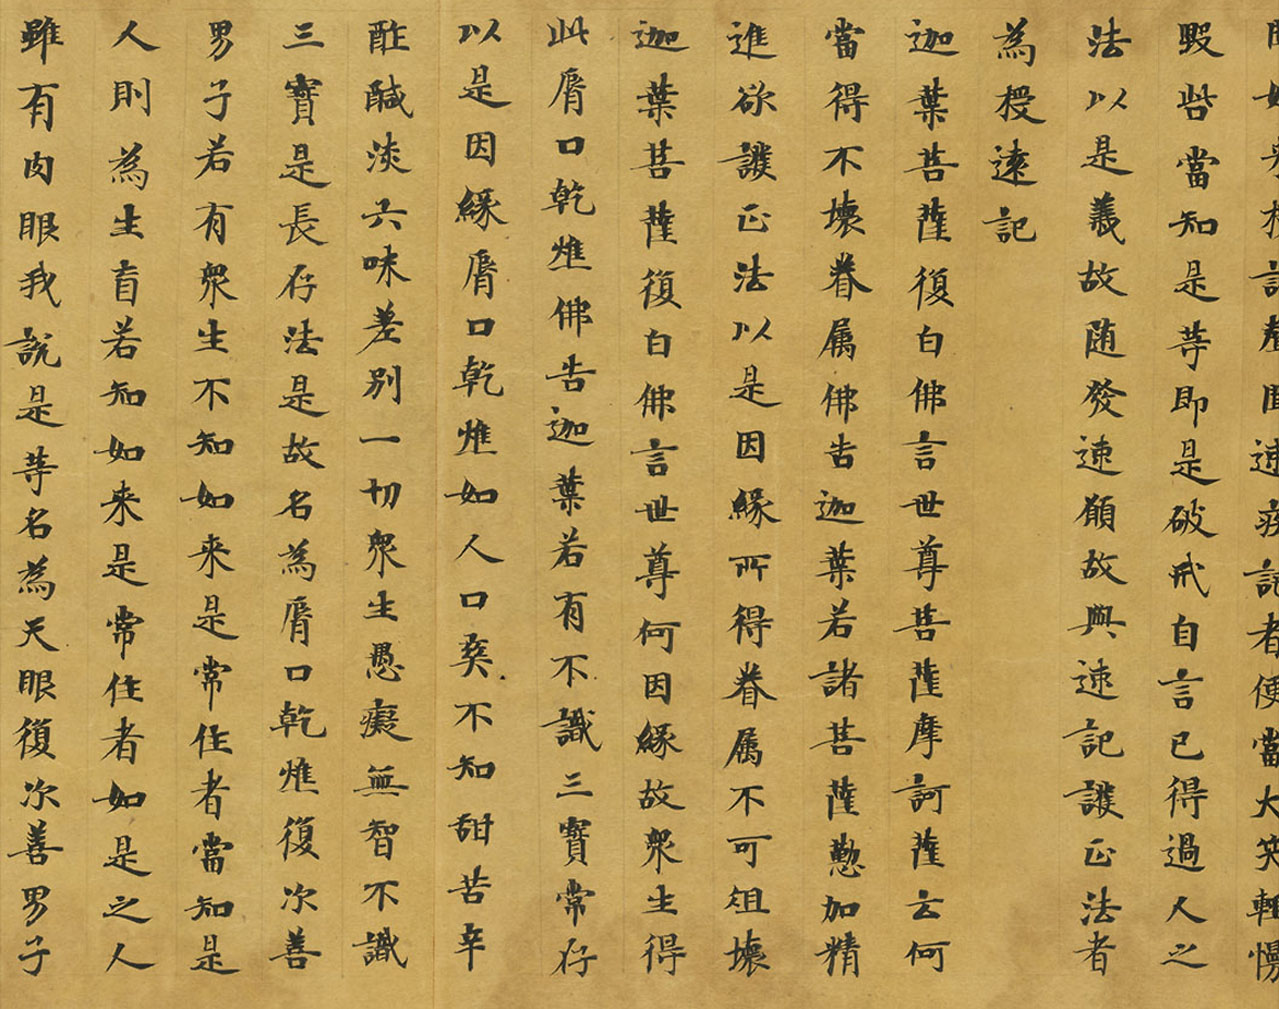 速疾記者便當大笑輕慢
毀呰當知是等即是破戒自言已得過人之
法以是義故随發速願故與速記護正法者
為授遠記
迦葉菩薩復白佛言世尊菩薩摩訶薩云何
當得不壞眷属佛告迦葉若諸菩薩懃加精
進欲護正法以是因緣所得眷属不可俎壞
迦葉菩薩復白佛言世尊何因緣故衆生得
此脣口乾燋佛告迦葉若有不識三寶常存
以是因緣脣口乾燋如人口爽不知甜苦辛
酢醎淡六味差別一切衆生愚癡無智不識
三寶是長存法是故名為脣口乾燋復次善
男子若有衆生不知如来是常住者當知是
人則為生盲若知如来是常住者如是之人
雖有肉眼我說是等名為天眼復次善男子